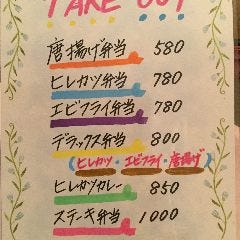 TAKE OUT
唐揚げ弁当 580
ヒレカツ弁当 780
エビフライ弁当 780
デラックス弁当 800
(ヒレカツ・エビフライ・唐揚げ)
ヒレカツカレー 850
ステーキ弁当 1000